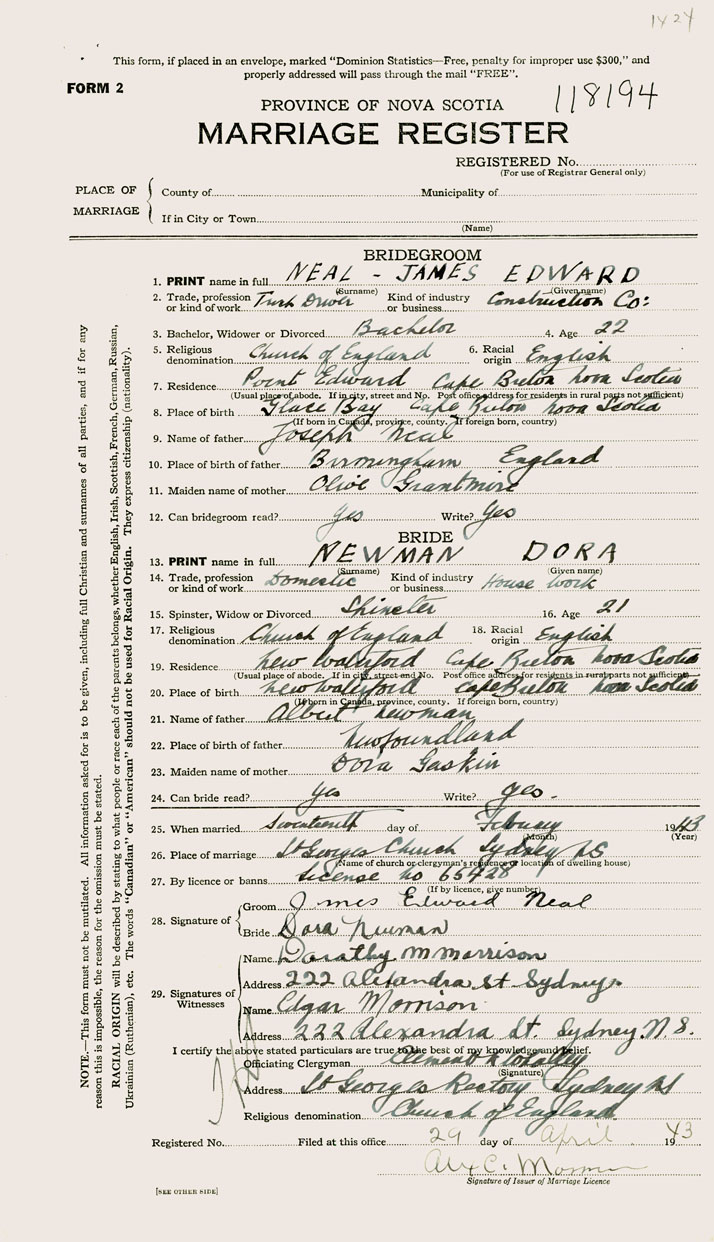 1424
This form, if placed in an envelope, marked "Dominion Statistics—Free, penalty for improper use $300," and
properly addressed will pass through the mail "FREE".
FORM 2
118194
PROVINCE OF NOVA SCOTIA
MARRIAGE REGISTER
REGISTERED No.
(For use of Registrar General only)
PLACE OF MARRIAGE
County of Municipality of
If in City or Town
(Name)
BRIDEGROOM
1. PRINT name in full NEAL - JAMES EDWARD
(Surname) (Given name)
2. Trade, profession or kind of work Truck Driver Kind of industry or business Construction Co:
3. Bachelor, Widower or Divorced Bachelor 4. Age 22
5. Religious denomination Church of England 6. Racial origin English
7. Residence Point Edward Cape Breton Nova Scotia
(Usual place of abode. If in city, street and No. Post office address for residents in rural parts not sufficient)
8. Place of birth Glace Bay Cape Breton Nova Scotia
(If born in Canada, province, county. If foreign born, country)
9. Name of father Joseph Neal
10. Place of birth of father Birmingham England
11. Maiden name of mother Olive Grantmire
12. Can bridegroom read? yes Write? Yes
BRIDE
13. PRINT name in full NEWMAN DORA
(Surname) (Given name)
14. Trade, profession or kind of work Domestic Kind of industry or business House work
15. Spinster, Widow or Divorced Spinster 16. Age 21
17. Religious denomination Church of England 18. Racial origin English
19. Residence New Waterford Cape Breton Nova Scotia
(Usual place of abode. If in city, street and No. Post office address for residents in rural parts not sufficient)
20. Place of birth New Waterford Cape Breton Nova Scotia
(If born in Canada, province, county. If foreign born, country)
21. Name of father Albert Newman
22. Place of birth of father Newfoundland
23. Maiden name of mother Dora Gaskin
24. Can bride read? yes Write? yes.
25. When married Seventeenth day of February 1943
(Month) (Year)
26. Place of marriage St Georges Church Sydney NS
(Name of church or clergyman's residence or location of dwelling house)
27. By licence or banns License no 65428
(If by licence, give number)
28. Signature of
Groom James Edward Neal
Bride Dora Newman
29. Signatures of Witnesses
Name Dorathy M Morrison
Address 222 Alexandra St Sydney
Name Edgar Morrison
Address 222 Alexandra St. Sydney N.S.
I certify the above stated particulars are true to the best of my knowledge and belief.
Officiating Clergyman Clement
(Signature)
Address St Georges Rectory Sydney NS
Religious denomination Church of England
Registered No. Filed at this office 29 day of April 1943
Alex C.
Signature of Issuer of Marriage Licence
[SEE OTHER SIDE]
NOTE.—This form must not be mutilated. All information asked for is to be given, including full Christian and surnames of all parties, and if for any
reason this is impossible, the reason for the omission must be stated.
RACIAL ORIGIN will be described by stating to what people or race each of the parents belongs, whether English, Irish, Scottish, French, German, Russian,
Ukrainian (Ruthenian), etc. The words "Canadian" or "American" should not be used for Racial Origin. They express citizenship (nationality).